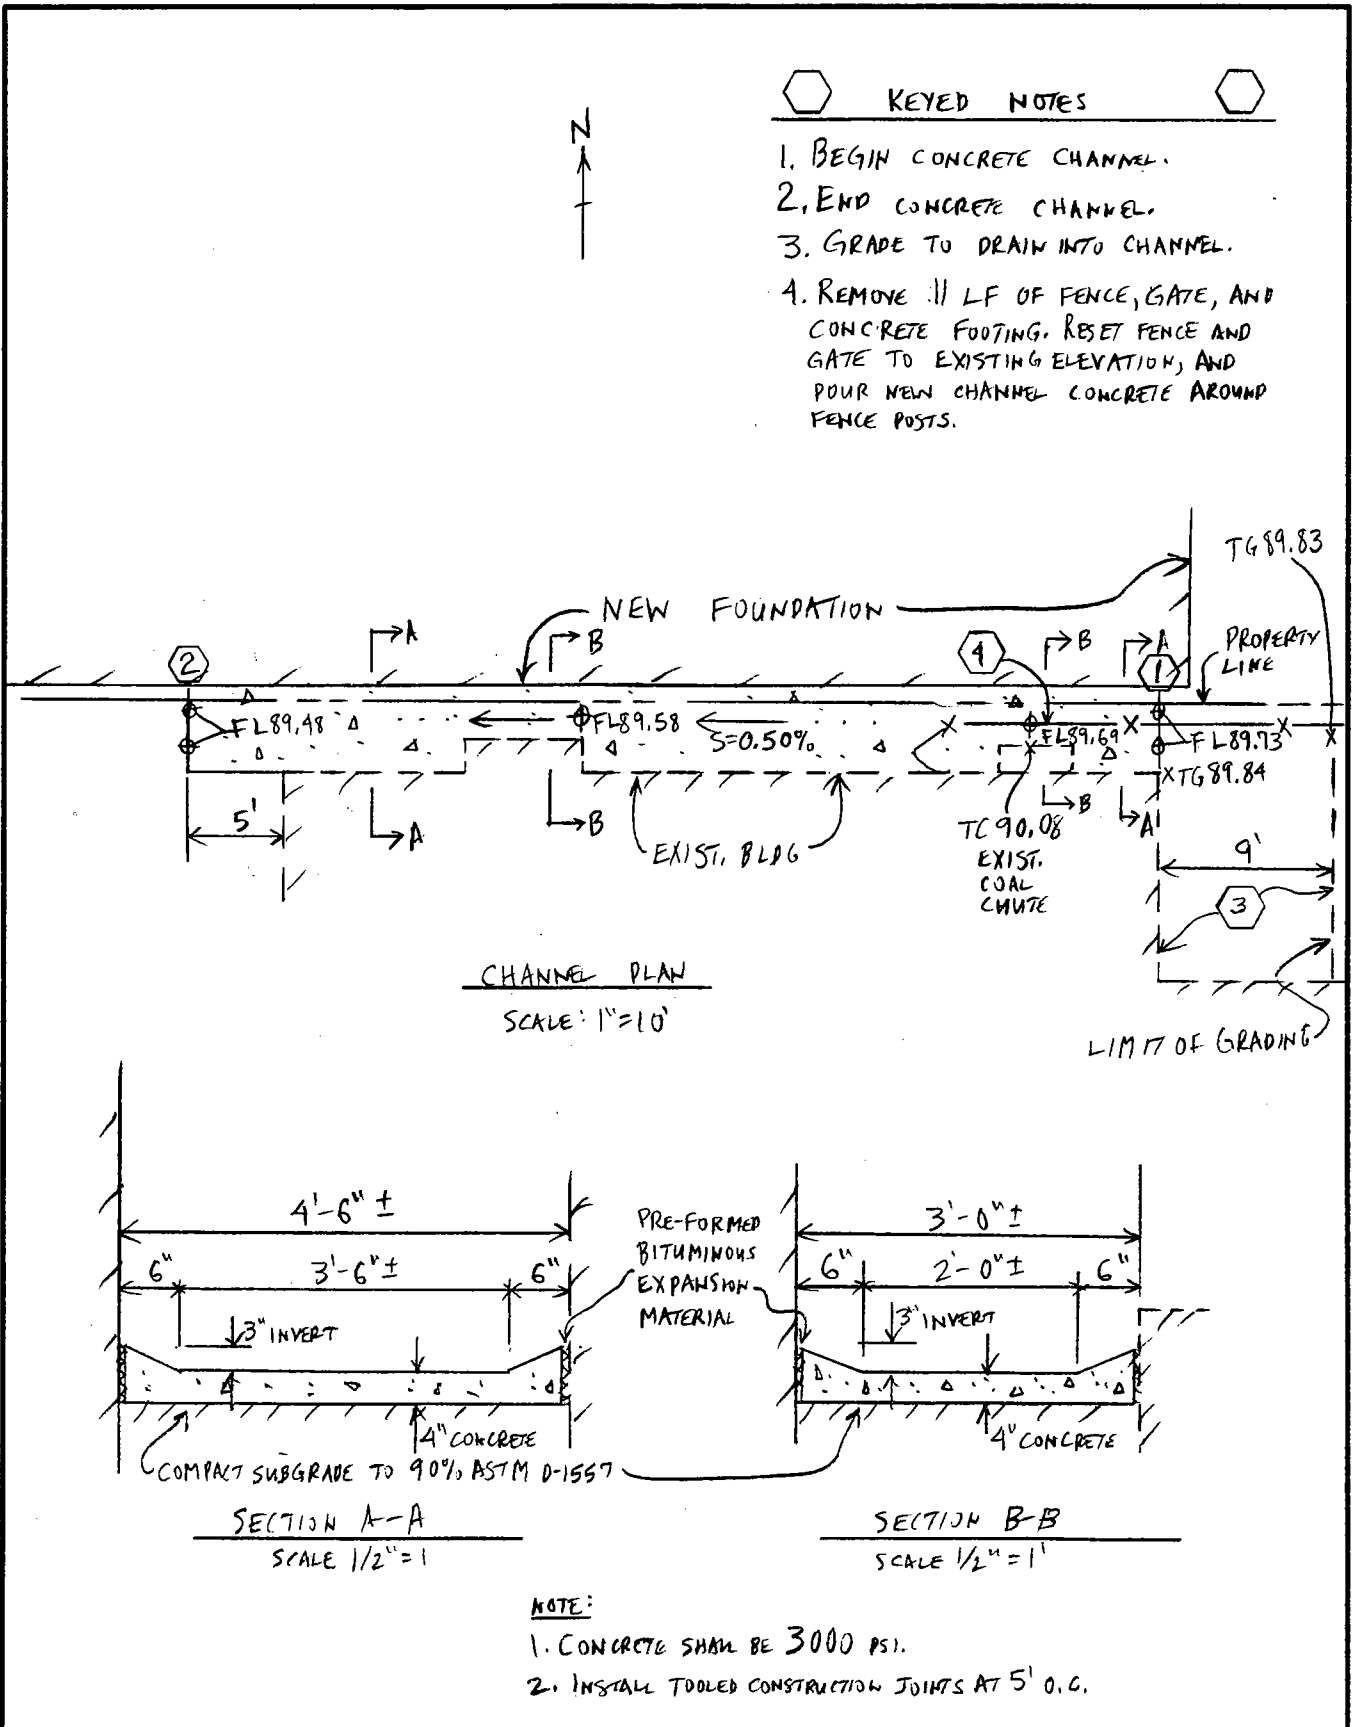 KEYED NOTES
1. BEGIN CONCRETE CHANNEL.
2. END CONCRETE CHANNEL.
3. GRADE TO DRAIN INTO CHANNEL.
4. REMOVE 11 LF OF FENCE, GATE, AND
CONCRETE FOOTING. RESET FENCE AND
GATE TO EXISTING ELEVATION, AND
POUR NEW CHANNEL CONCRETE AROUND
FENCE POSTS.
N
TG 89.83
NEW FOUNDATION
A
B
B
A
PROPERTY
LINE
2
4
1
FL89.48
FL89.58
S=0.50%
FL89.69
FL89.73
TG89.84
5'
A
B
B
A
EXIST. BLDG
TC 90.08
EXIST.
COAL
CHUTE
9'
3
CHANNEL PLAN
SCALE: 1"=10'
LIMIT OF GRADING
4'-6" ±
6"
3'-6" ±
6"
3" INVERT
4" CONCRETE
PRE-FORMED
BITUMINOUS
EXPANSION
MATERIAL
3'-0" ±
6"
2'-0" ±
6"
3" INVERT
4" CONCRETE
COMPACT SUBGRADE TO 90% ASTM D-1557
SECTION A-A
SCALE 1/2"=1
SECTION B-B
SCALE 1/2"=1'
NOTE:
1. CONCRETE SHALL BE 3000 PSI.
2. INSTALL TOOLED CONSTRUCTION JOINTS AT 5' O.C.